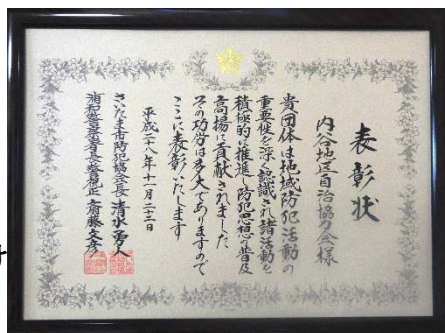 表彰状
内谷地区自治協力会様
貴団体は地域防犯活動の
重要性を深く認識され諸活動を
積極的に推進し防犯思想の普及
高揚に貢献されました
その功労は多大でありますので
ここに表彰いたします
平成二十八年十一月二十二日
さいたま市防犯協会長 清水勇人
浦和警察署長警視正 齋藤文彦